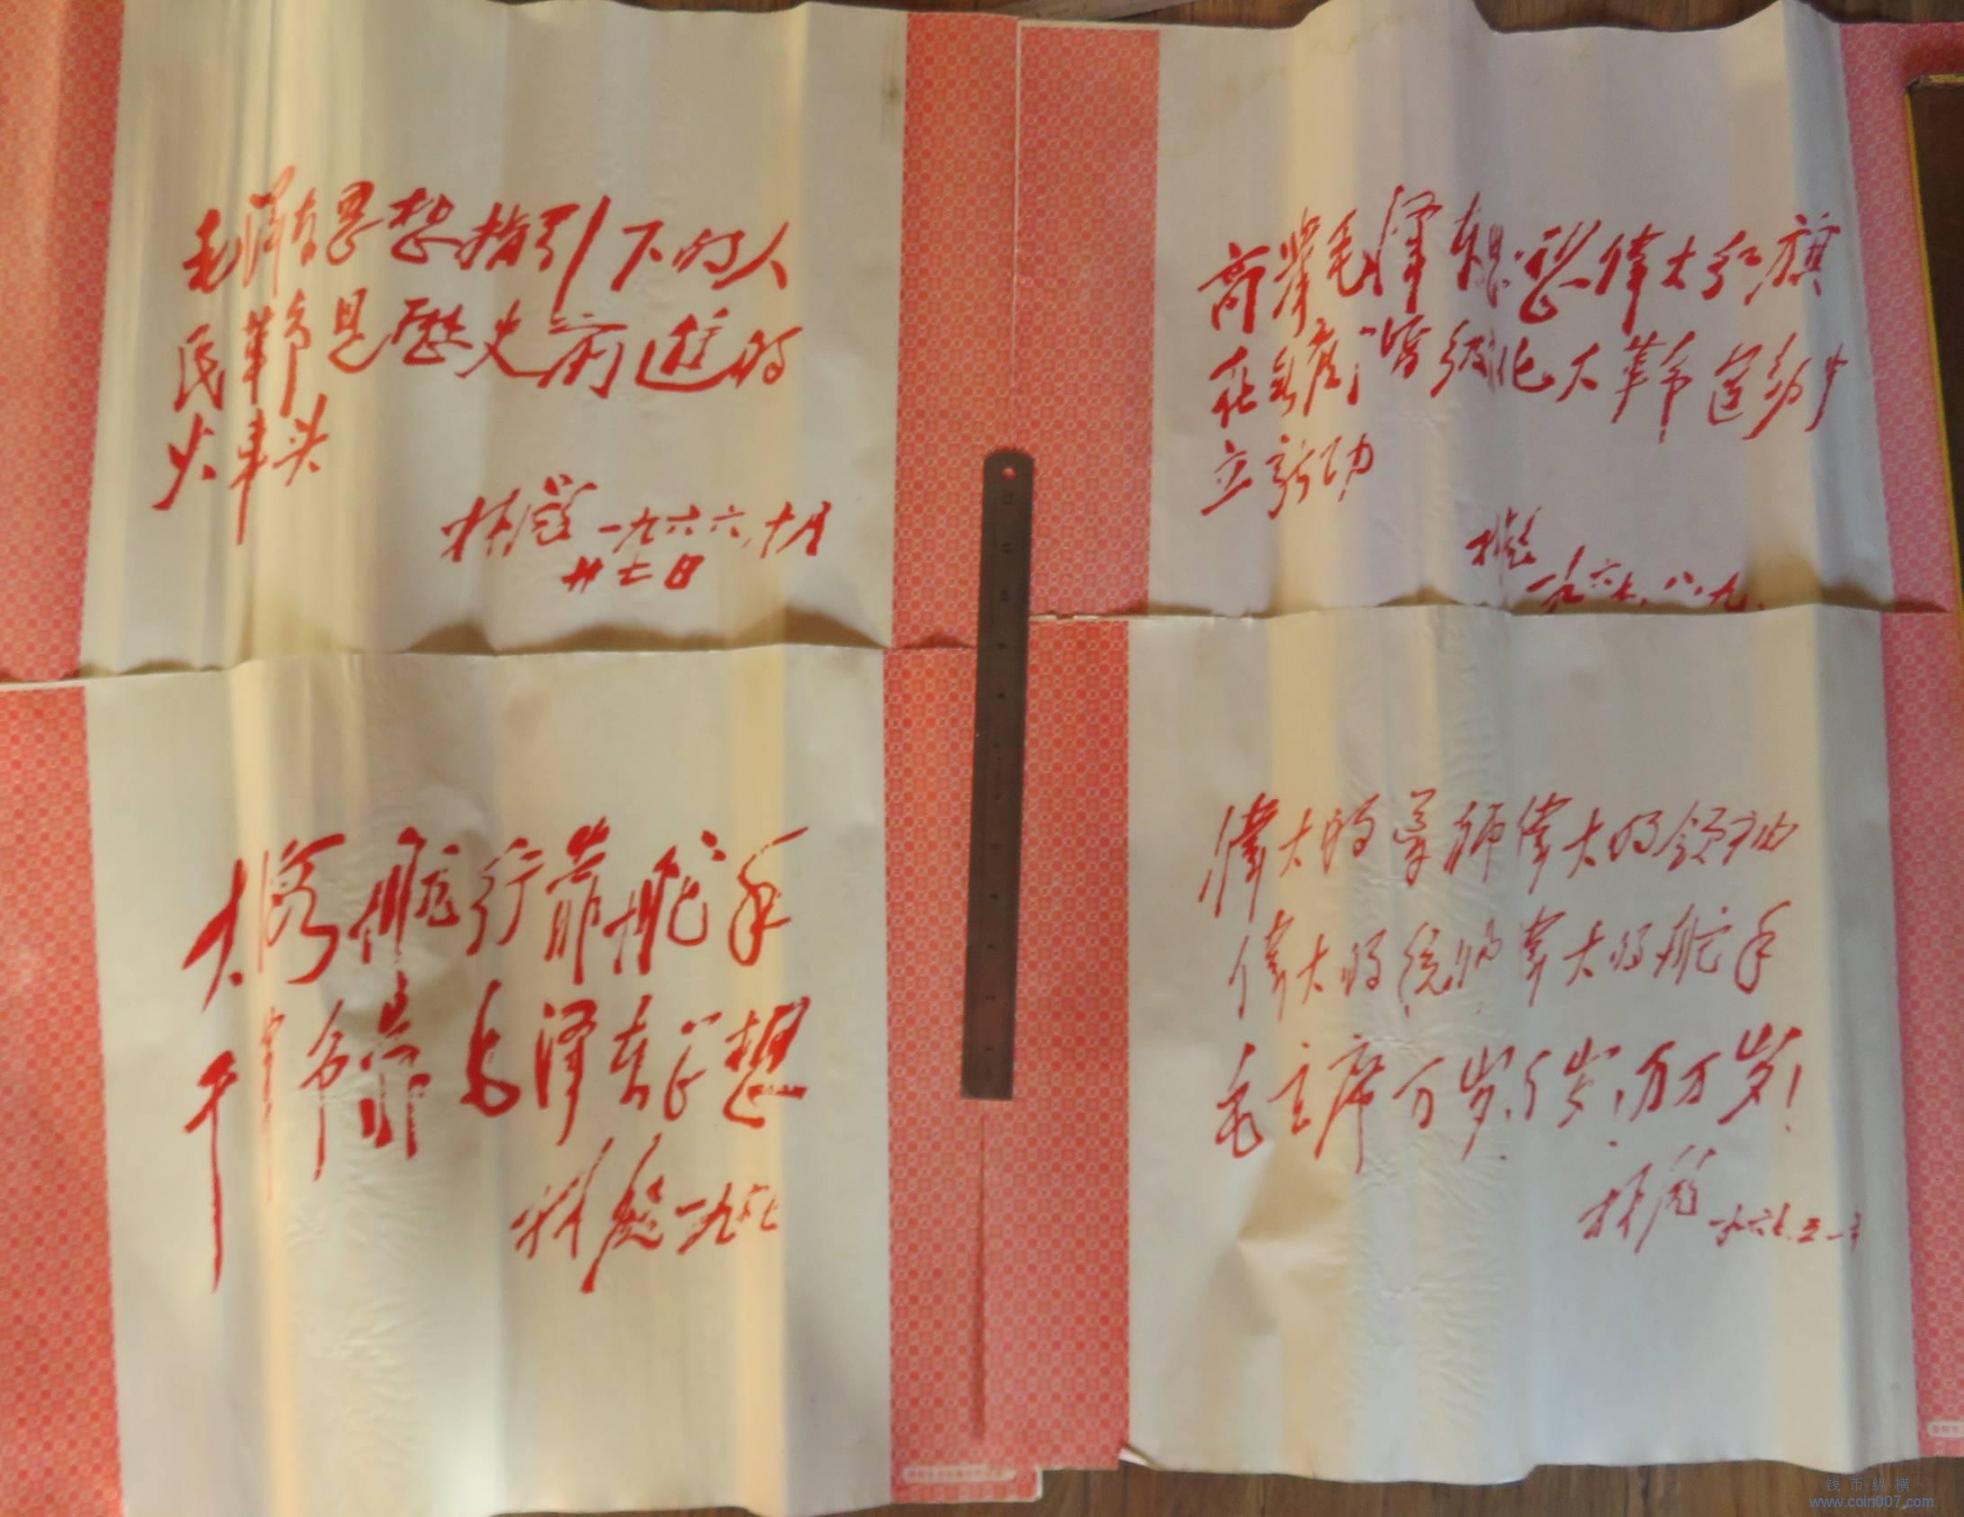 毛泽东思想指引下的人
民革命是歷史前進的
火车头
林彪 一九六六、十月
廿七日
高举毛泽东思想偉大红旗
在无产階级文化大革命运动中
立新功
林彪
一九六七、八、九、
大海航行靠舵手
干革命靠毛泽东思想
林彪 一九六七
偉大的导师偉大的领袖
偉大的统帅偉大的舵手
毛主席万岁、万岁、万万岁!
林彪 一九六七、五、一
钱币纵横
www.coin007.com